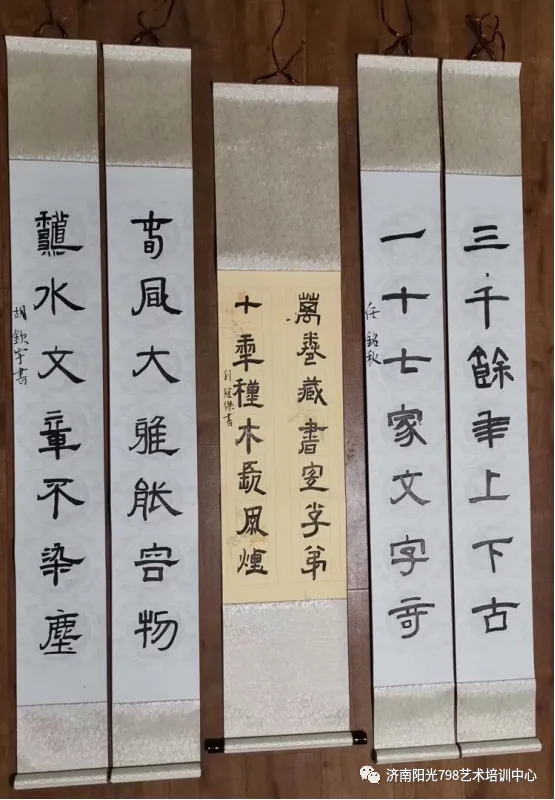 三千餘年上下古
一十七家文字奇
任銘秋
萬卷藏書宜子弟
十年種木長風煙
刘冠傑書
春風大雅能容物
龝水文章不染塵
胡欽宇書
济南阳光798艺术培训中心